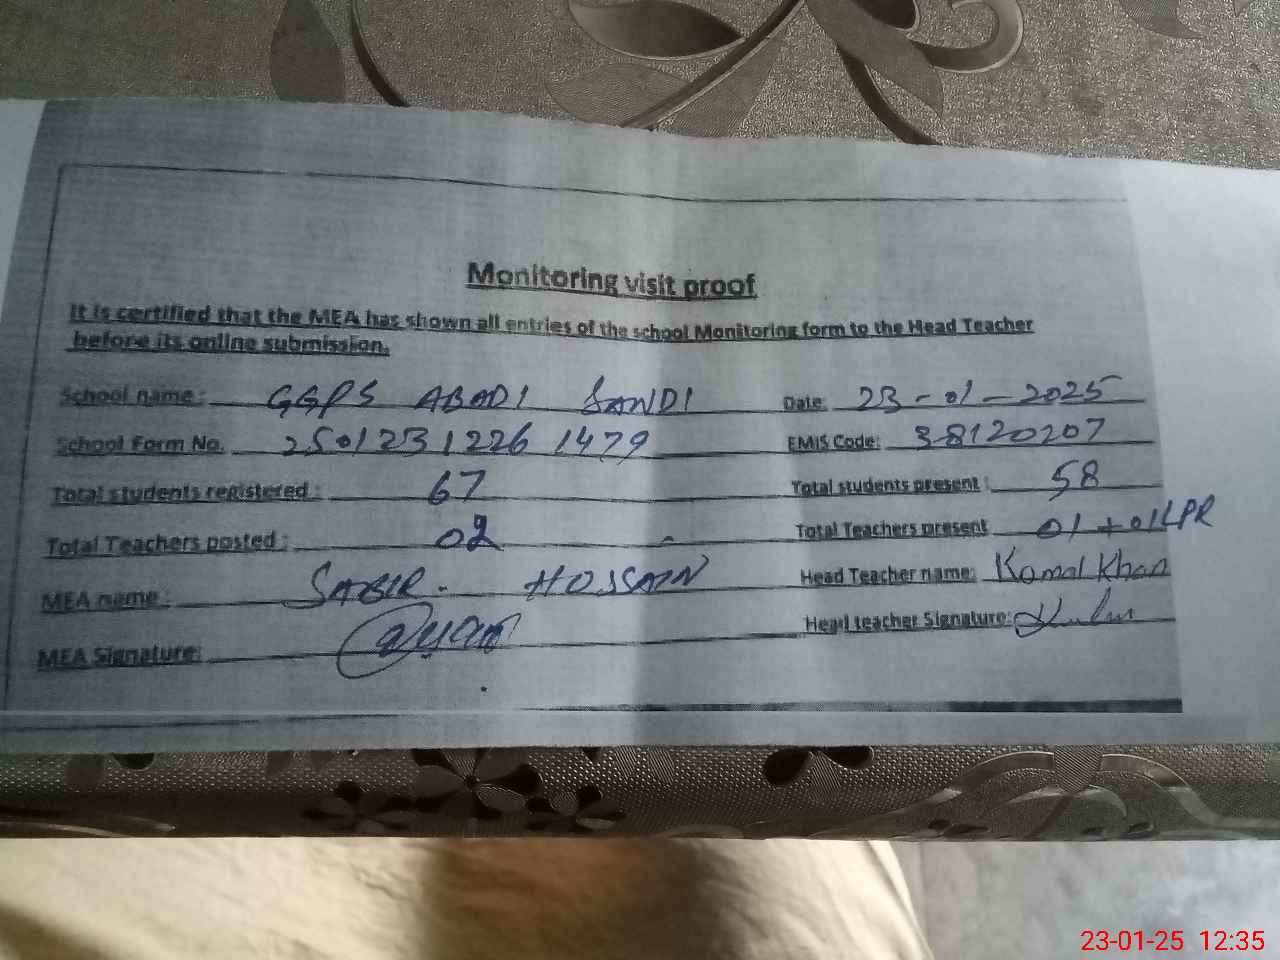 Monitoring visit proof
It is certified that the MEA has shown all entries of the school Monitoring form to the Head Teacher
before its online submission.
School name: GGPS ABADI SANDI Date: 23-01-2025
School Form No. 2501231226 1479 EMIS Code: 38120207
Total students registered: 67 Total students present: 58
Total Teachers posted: 02 Total Teachers present 01+01LPR
MEA name: SABIR. HUSSAIN Head Teacher name: Komal Khan
MEA Signature: Head teacher Signature:
23-01-25 12:35